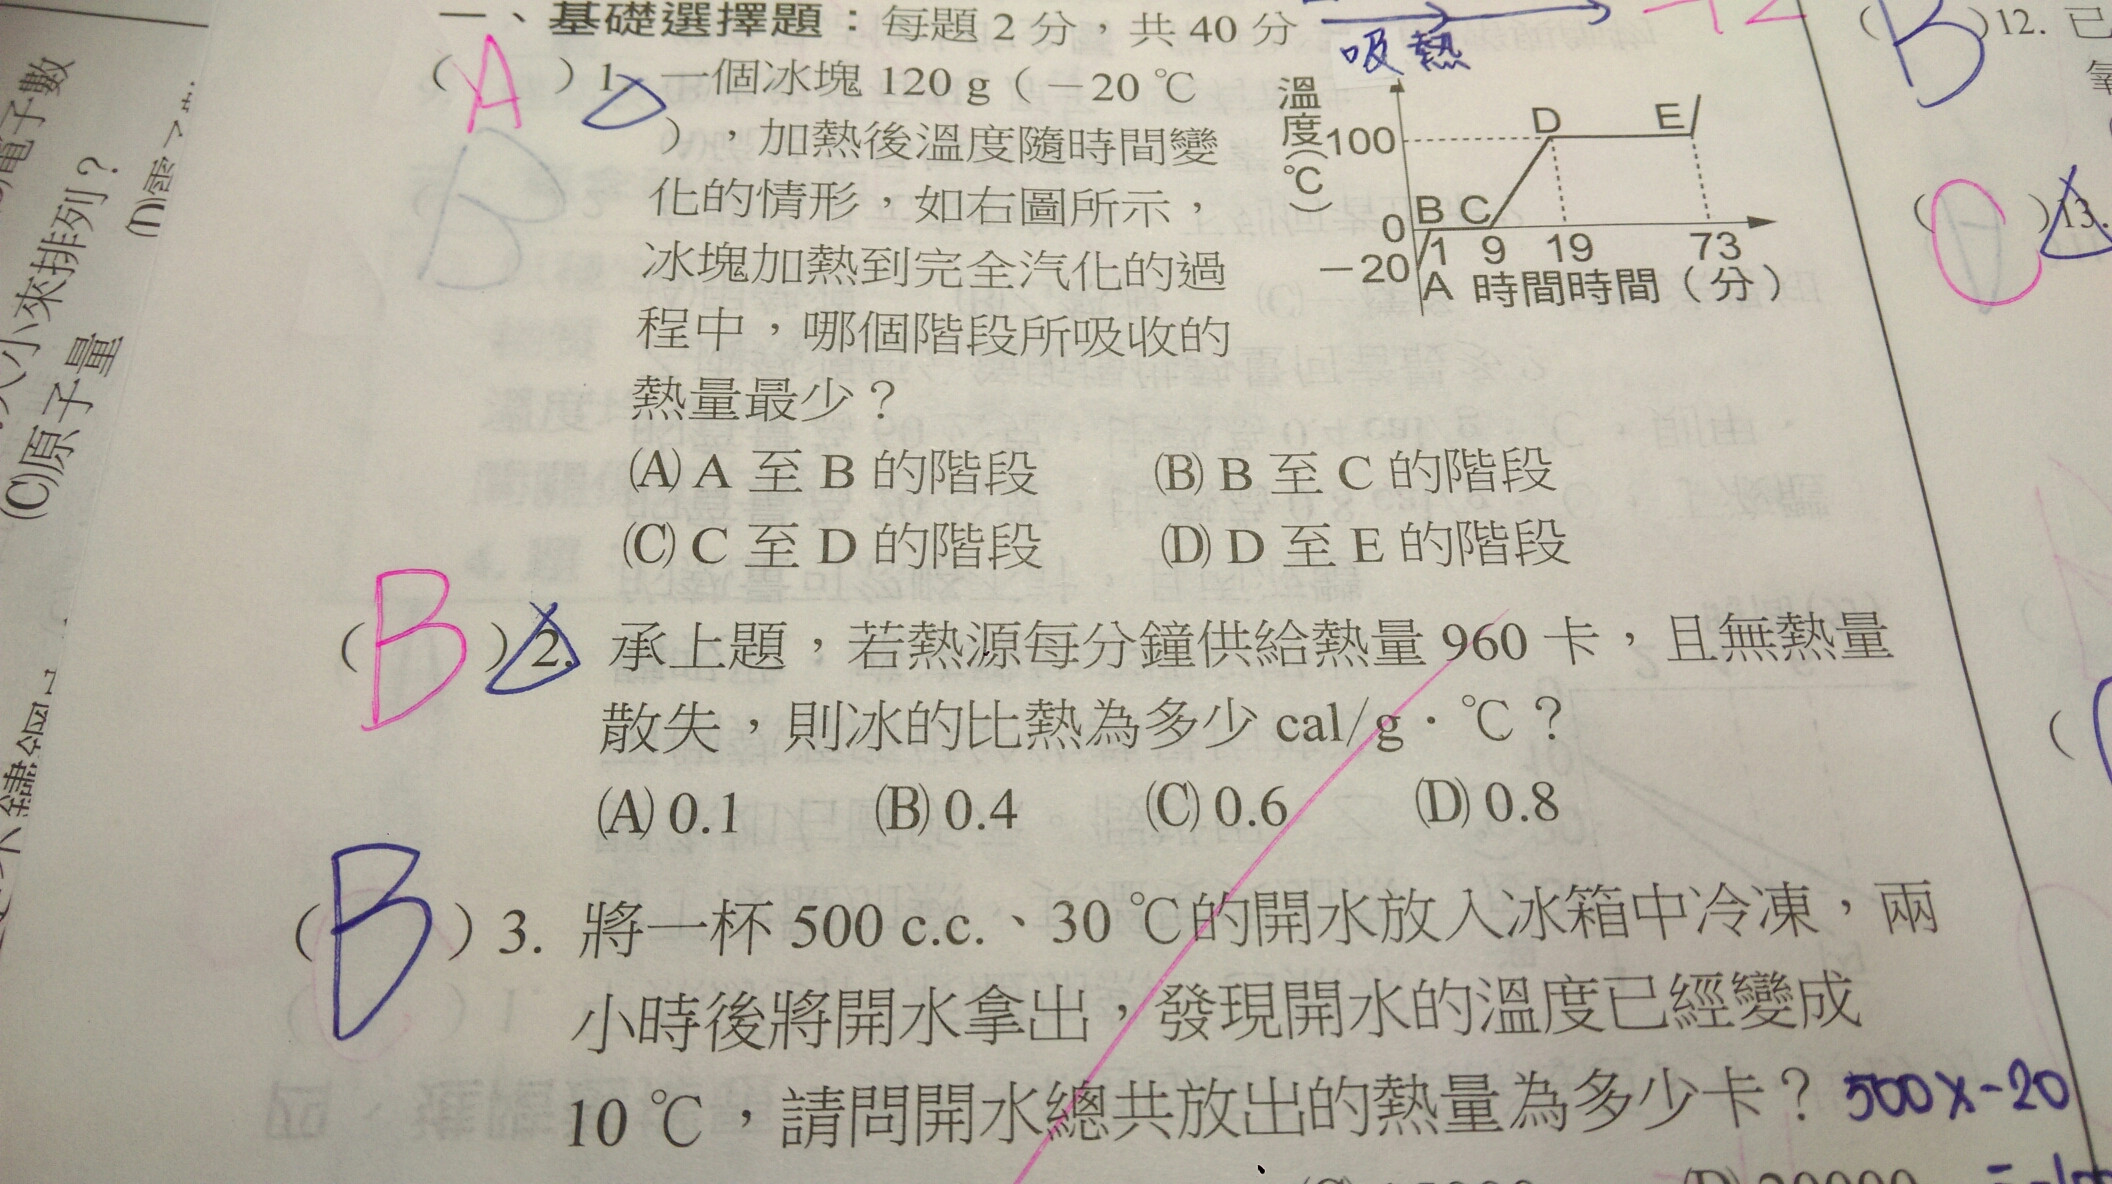 一、基礎選擇題：每題 2 分，共 40 分
吸熱
(A) 1. 一個冰塊 120 g（－20 ℃
），加熱後溫度隨時間變
化的情形，如右圖所示，
冰塊加熱到完全汽化的過
程中，哪個階段所吸收的
熱量最少？
B
溫度(℃)
100
0
－20
D E
B C
A
1 9 19 73
時間時間（分）
(A) A 至 B 的階段 (B) B 至 C 的階段
(C) C 至 D 的階段 (D) D 至 E 的階段
(B) 2. 承上題，若熱源每分鐘供給熱量 960 卡，且無熱量
散失，則冰的比熱為多少 cal/g．℃？
(A) 0.1 (B) 0.4 (C) 0.6 (D) 0.8
(B) 3. 將一杯 500 c.c.、30 ℃的開水放入冰箱中冷凍，兩
小時後將開水拿出，發現開水的溫度已經變成
10 ℃，請問開水總共放出的熱量為多少卡？ 500×-20
(B) 12. 已
) 13.
電子數
小來排列？
(C)原子量